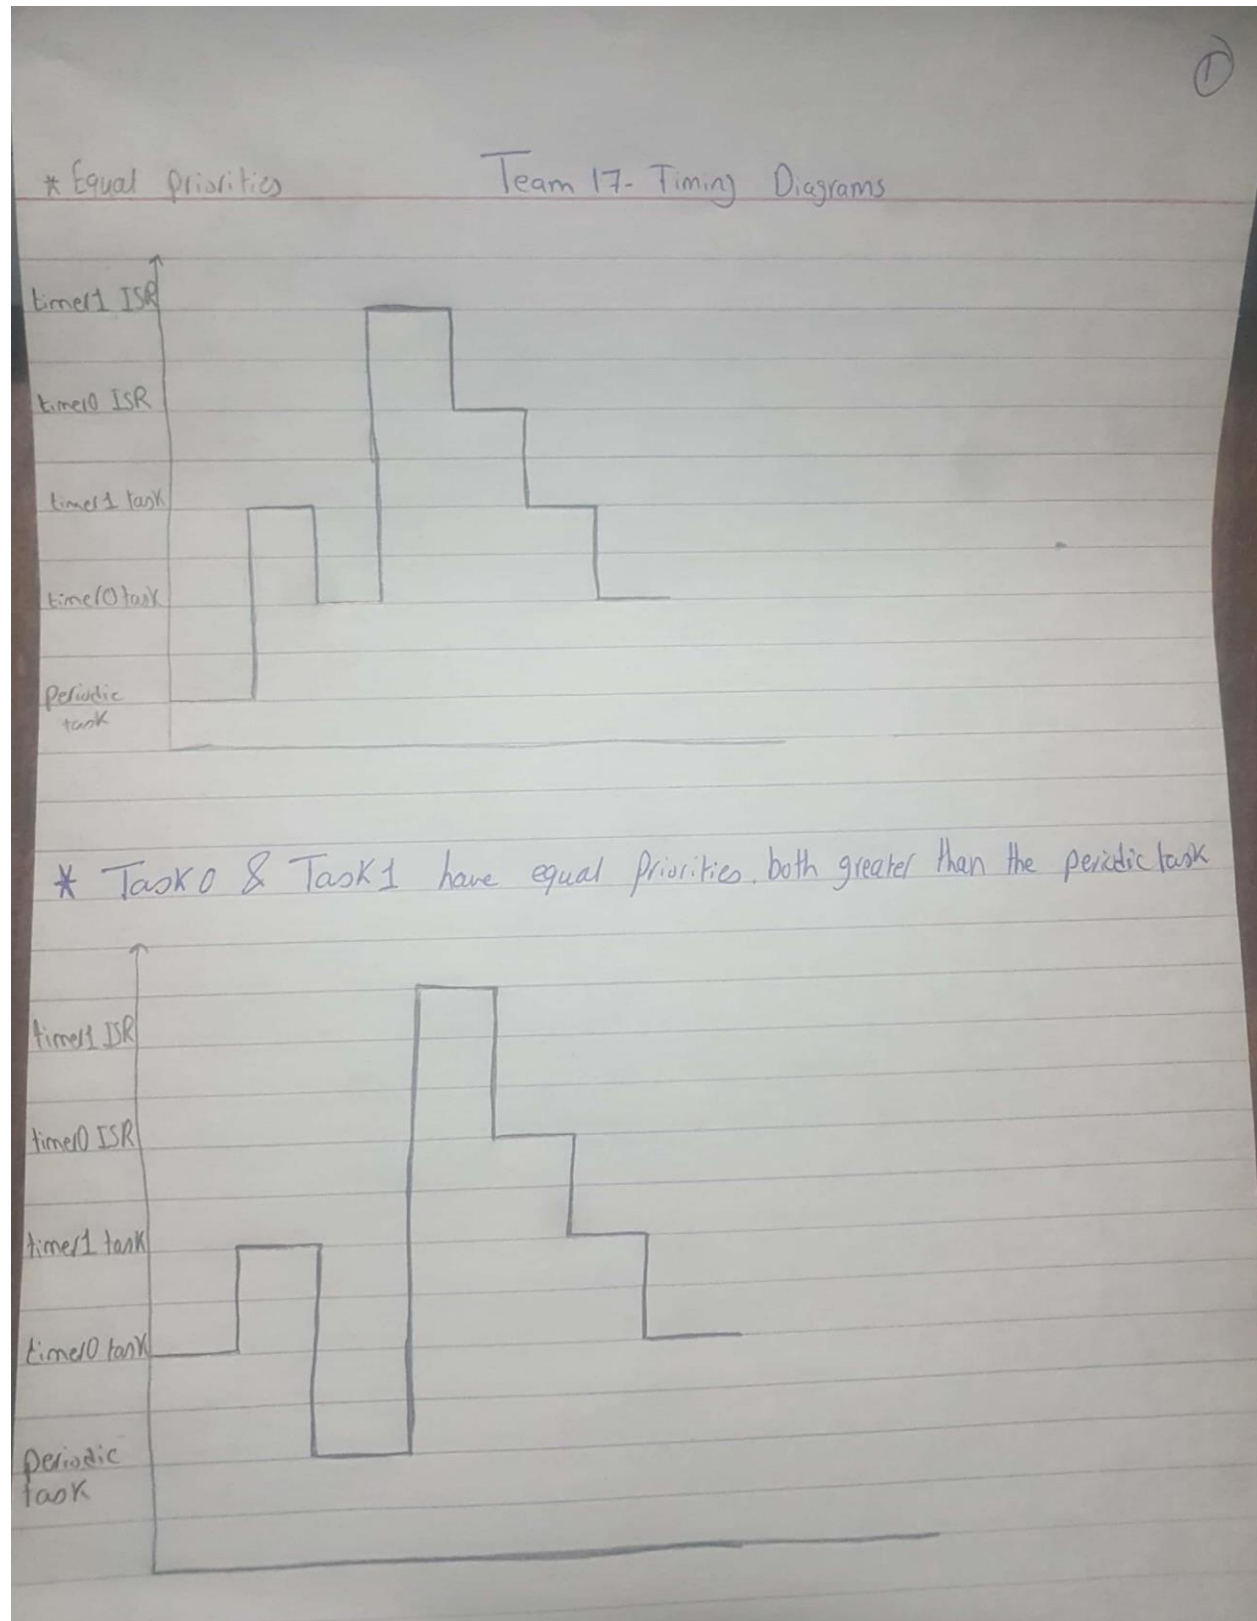 1
* Equal priorities Team 17- Timing Diagrams
timer1 ISR
timer0 ISR
timer1 task
timer0 task
Periodic
task
* Task 0 & Task 1 have equal Priorities. both greater than the periodic task
timer1 ISR
timer0 ISR
timer1 task
timer0 task
Periodic
task